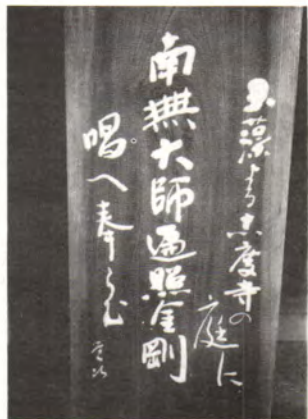 玉藻よる志度寺の
庭に
南無大師遍照金剛
唱へ奉らむ